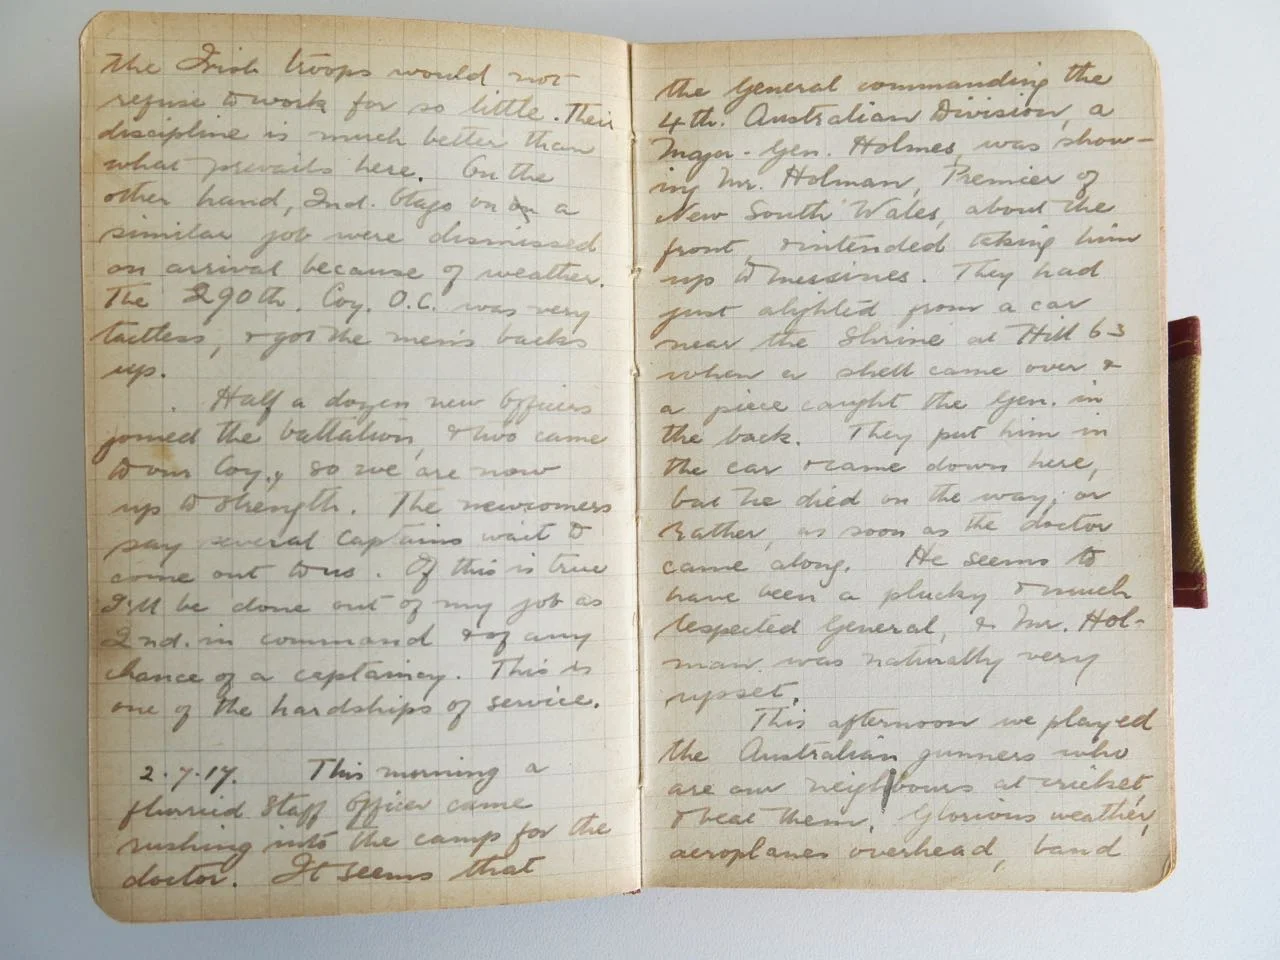 the Irish troops would not
refuse to work for so little. Their
discipline is much better than
what prevails here. On the
other hand, 2nd. Otago on a
similar job were dismissed
on arrival because of weather.
The 290th. Coy. O.C. was very
tactless, & got the men's backs
up.
Half a dozen new officers
joined the battalion, & two came
to our Coy., so we are now
up to strength. The newcomers
say several captains wait to
come out to us. If this is true
I'll be done out of my job as
2nd. in command & of any
chance of a captaincy. This is
one of the hardships of service.
2.7.17. This morning a
flurried Staff Officer came
rushing into the camp for the
doctor. It seems that
the General commanding the
4th. Australian Division, a
Major-Gen. Holmes, was show-
ing Mr. Holman, Premier of
New South Wales, about the
front, & intended taking him
up to Messines. They had
just alighted from a car
near the Shrine at Hill 63
when a shell came over &
a piece caught the Gen. in
the back. They put him in
the car & came down here,
but he died on the way; or
rather, as soon as the doctor
came along. He seems to
have been a plucky & much
respected General, & Mr. Hol-
man was naturally very
upset.
This afternoon we played
the Australian gunners who
are our neighbours at cricket,
& beat them. Glorious weather,
aeroplanes overhead, band